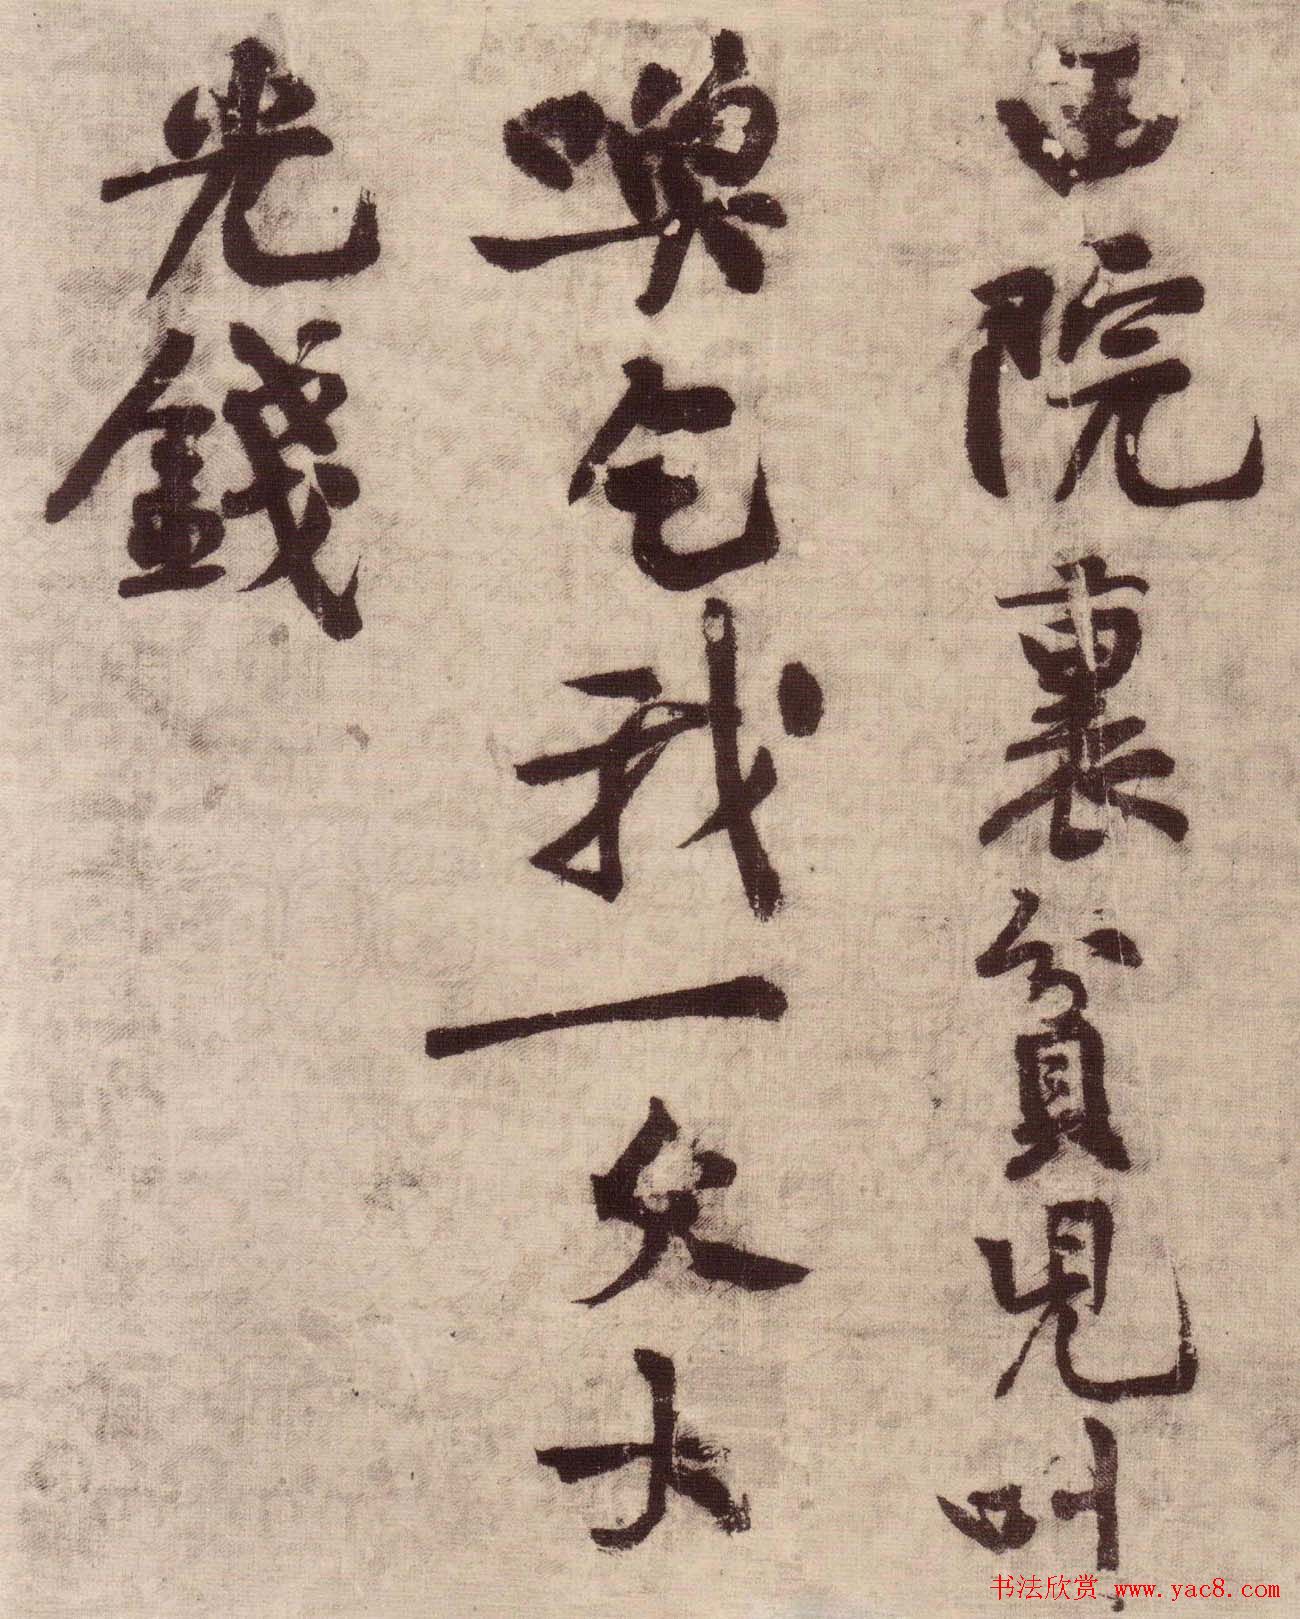 田院裏貧兒叫
喚乞我一文大
光錢
书法欣赏 www.yac8.com